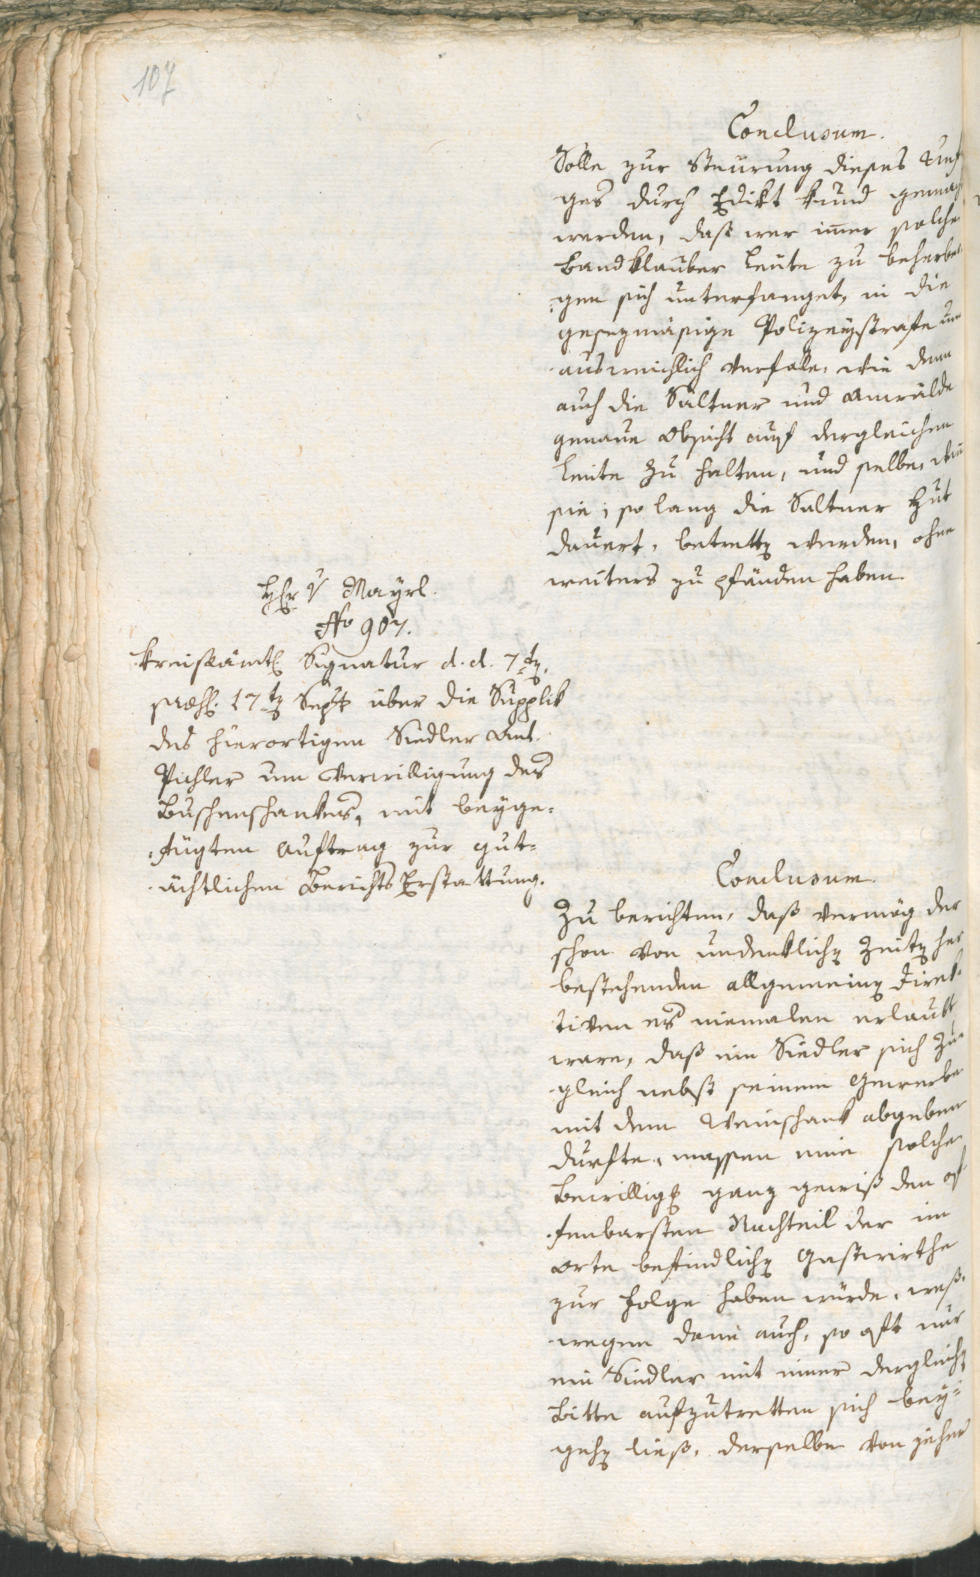 107
Conclusum.
Solle zur Steurung dieses Unf
ges durch Edikt kund gemach
werden, daß wer immer solche
Landklauber Leute zu beherber
gen sich unterfanget, in die
gesezmäsige Polizeystrafe un
ausweichlich verfale, wie dann
auch die Saltner und Anwälde
genaue Obsicht auf dergleichen
Leute zu halten, und selbe, wen
sie, so lang die Saltner Hut
dauert, betrettn werden, ohne
weiters zu pfänden haben.
Hr v Mayrl.
No 907.
Kreisämtl Signatur d. d. 7tn,
præs. 17tn Sept über die Supplik
des hierortigen Siedler Ant.
Pichler um Verwilligung des
Buschenschankes, mit beyge=
fügten Auftrag zur gut=
ächtlichen Berichts Erstattung.
Conclusum.
Zu berichten, daß vermög der
schon von undenklichn Zeitn her
bestehenden allgemeinn Direk=
tiven es niemalen erlaubt
ware, daß ein Siedler sich zu=
gleich nebst seinem Gewerbe
mit dem Weinschank abgeben
durfte, massen eine solche
Bewilligg ganz gewiß den of
fenbarsten Nachteil der im
Orte befindlichn Gastwirthe
zur Folge haben würde, weß=
wegen dann auch, so oft nur
ein Siedler mit einer dergleichn
Bitte aufzutretten sich bey=
gehn ließ, derselbe von jeher